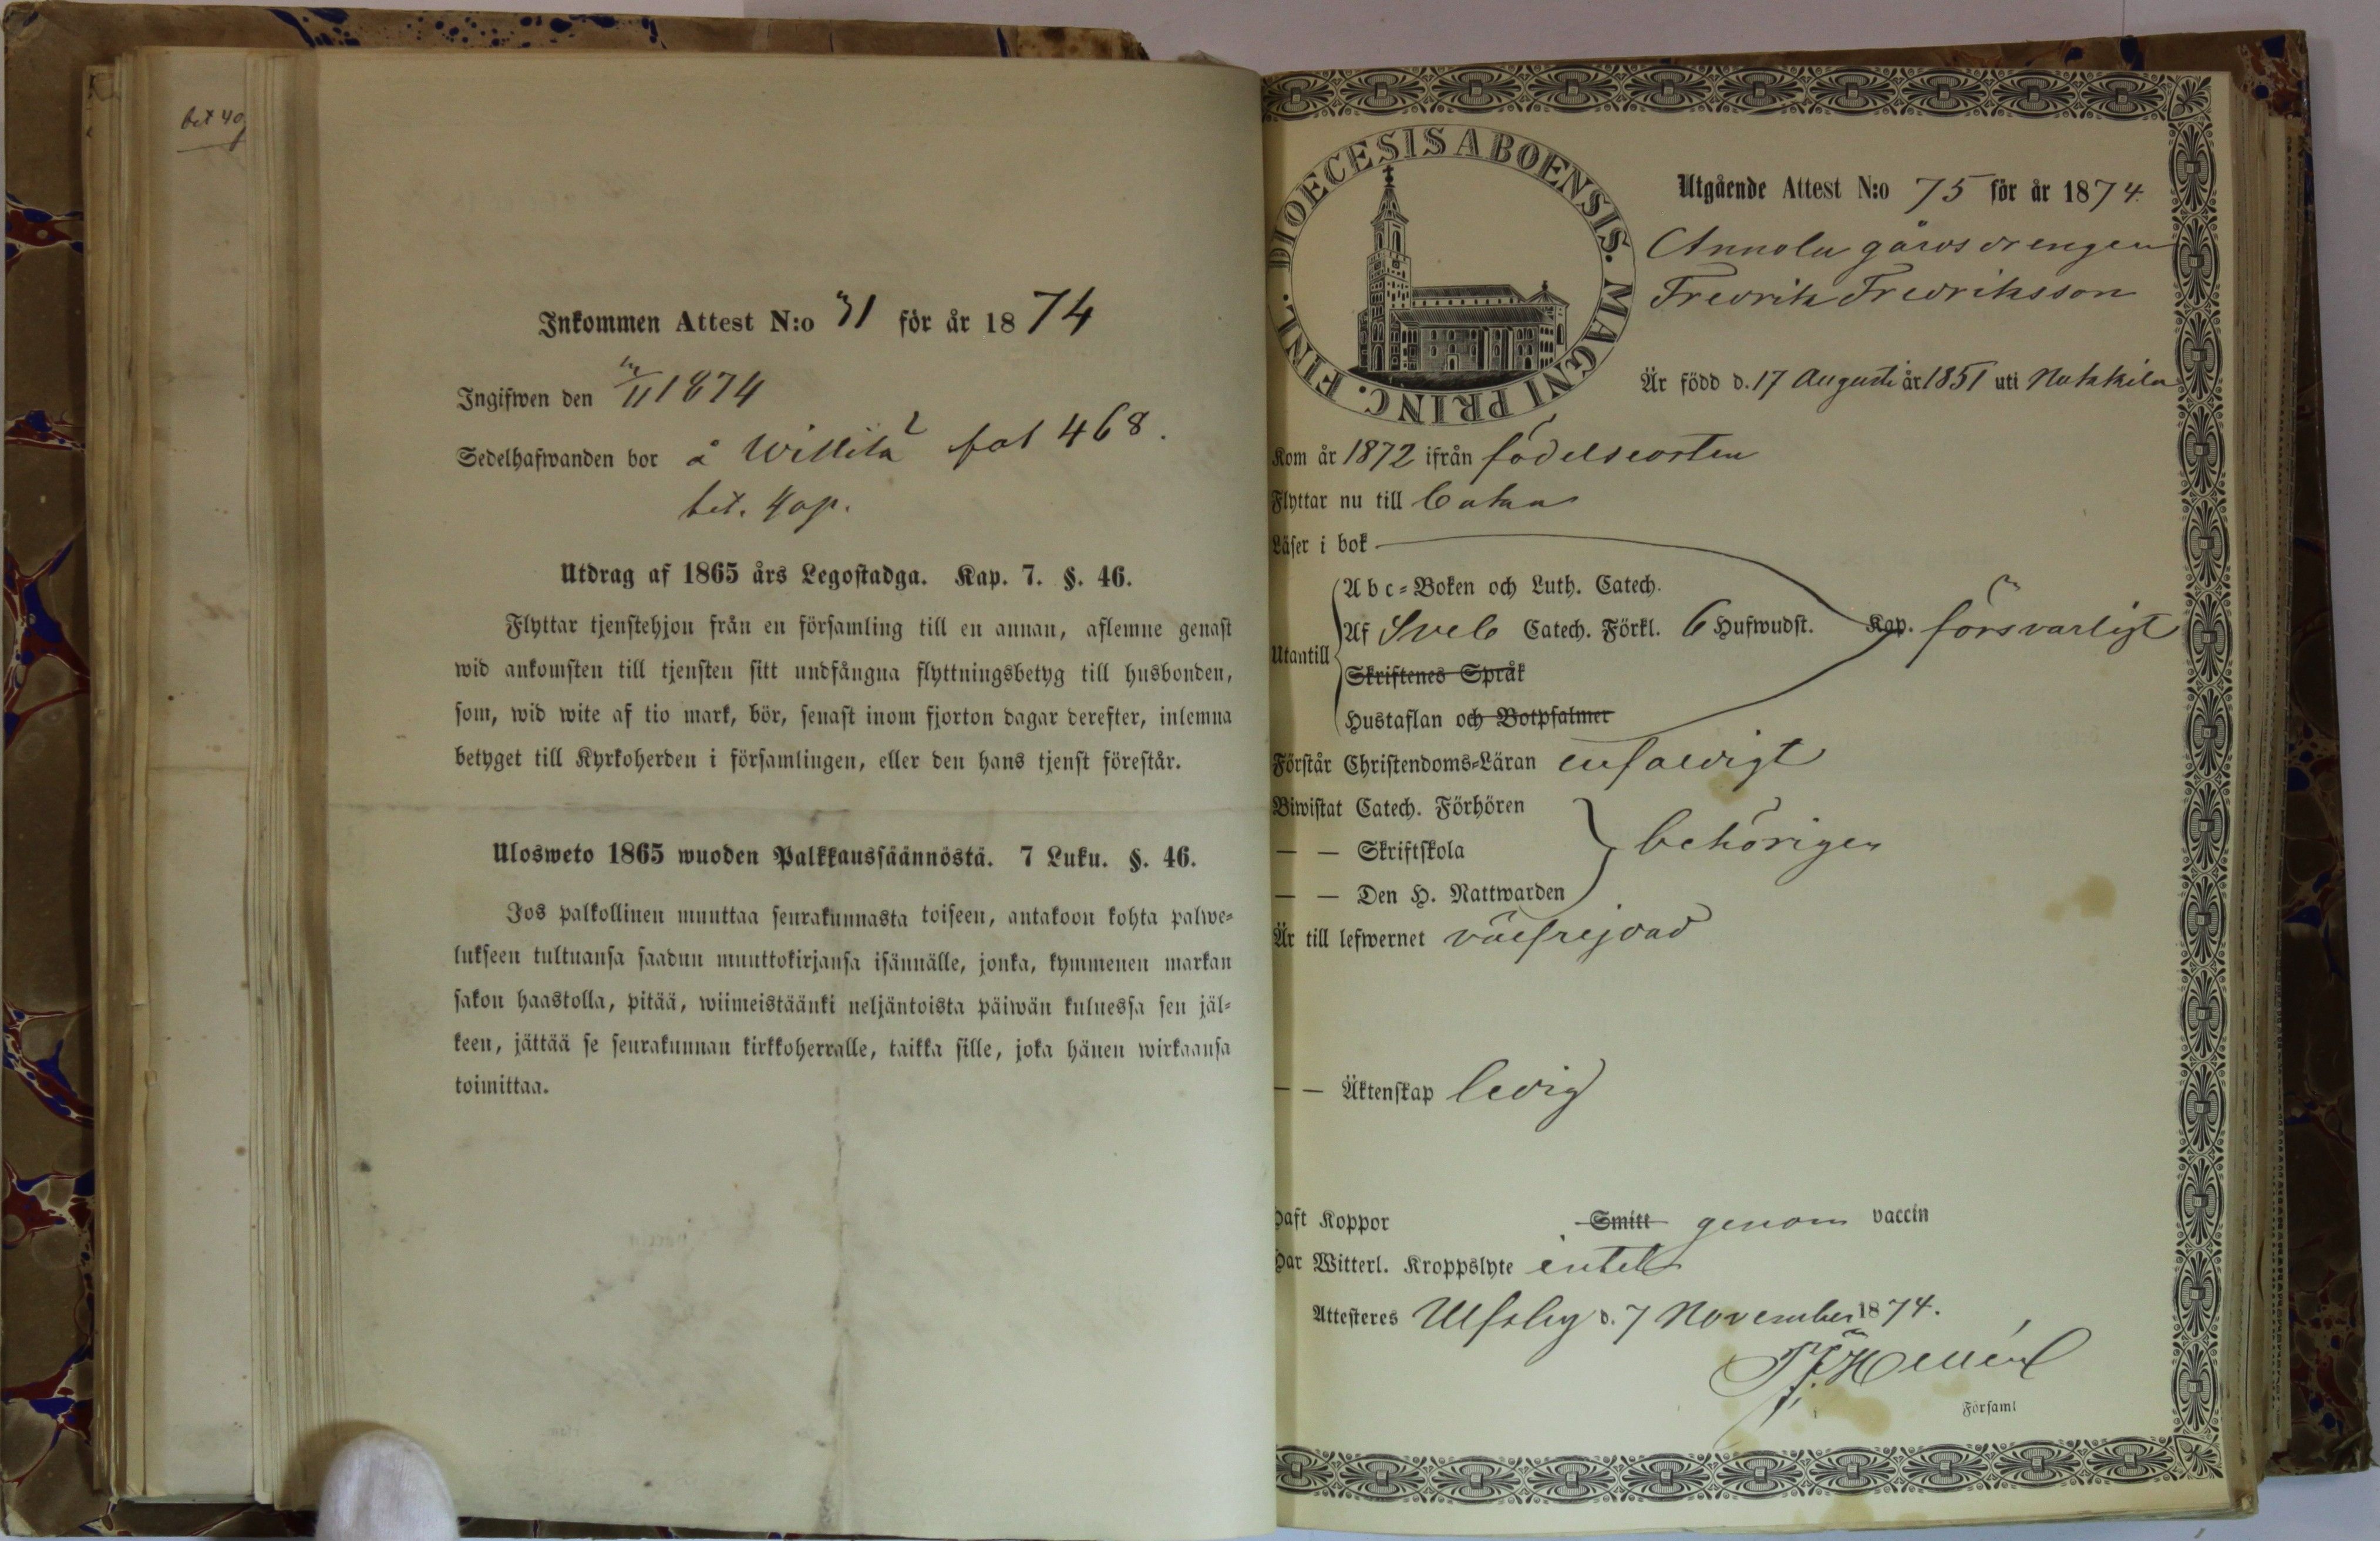 bet 40
Inkommen Attest N:o 31 för år 1874
Ingifwen den 11 1874
Sedelhafwanden bor å fol 468.
bet. 40 p.
Utdrag af 1865 års Legostadga. Kap. 7. §. 46.
Flyttar tjenstehjon från en församling till en annan, aflemne genast
wid ankomsten till tjensten sitt undfångna flyttningsbetyg till husbonden,
som, wid wite af tio mark, bör, senast inom fjorton dagar derefter, inlemna
betyget till Kyrkoherden i församlingen, eller den hans tjenst förestår.
Ulosweto 1865 wuoden Palkkaussäännöstä. 7 Luku. §. 46.
Jos palkollinen muuttaa seurakunnasta toiseen, antakoon kohta palwe-
lukseen tultuansa saadun muuttokirjansa isännälle, jonka, kymmenen markan
sakon haastolla, pitää, wiimeistäänki neljäntoista päiwän kuluessa sen jäl-
keen, jättää se seurakunnan kirkkoherralle, taikka sille, joka hänen wirkaansa
toimittaa.
DIOECESIS ABOENSIS. MAGNI PRINC. FINL.
Utgående Attest N:o 75 för år 1874.
Annola gårdsdrengen
Fredrik Fredriksson
Är född d. 17 Augusti år 1851 uti Nakkila
Kom år 1872 ifrån födelseorten
Flyttar nu till
Läser i bok
Utantill
A b c-Boken och Luth. Catech.
Af Sveb Catech. Förkl. 6 Hufwudst. Kap. försvarligt
Skriftenes Språk
Hustaflan och Botpsalmer
Förstår Christendoms-Läran enfaldigt
Biwistat Catech. Förhören
— — Skriftskola behörigen
— — Den H. Nattwarden
Är till lefwernet välfrejdad
— — Äktenskap ledig
Haft Koppor Smitt genom vaccin
Har Witterl. Kroppslyte intet
Attesteres Ulfsby d. 7 November 1874.
Församl